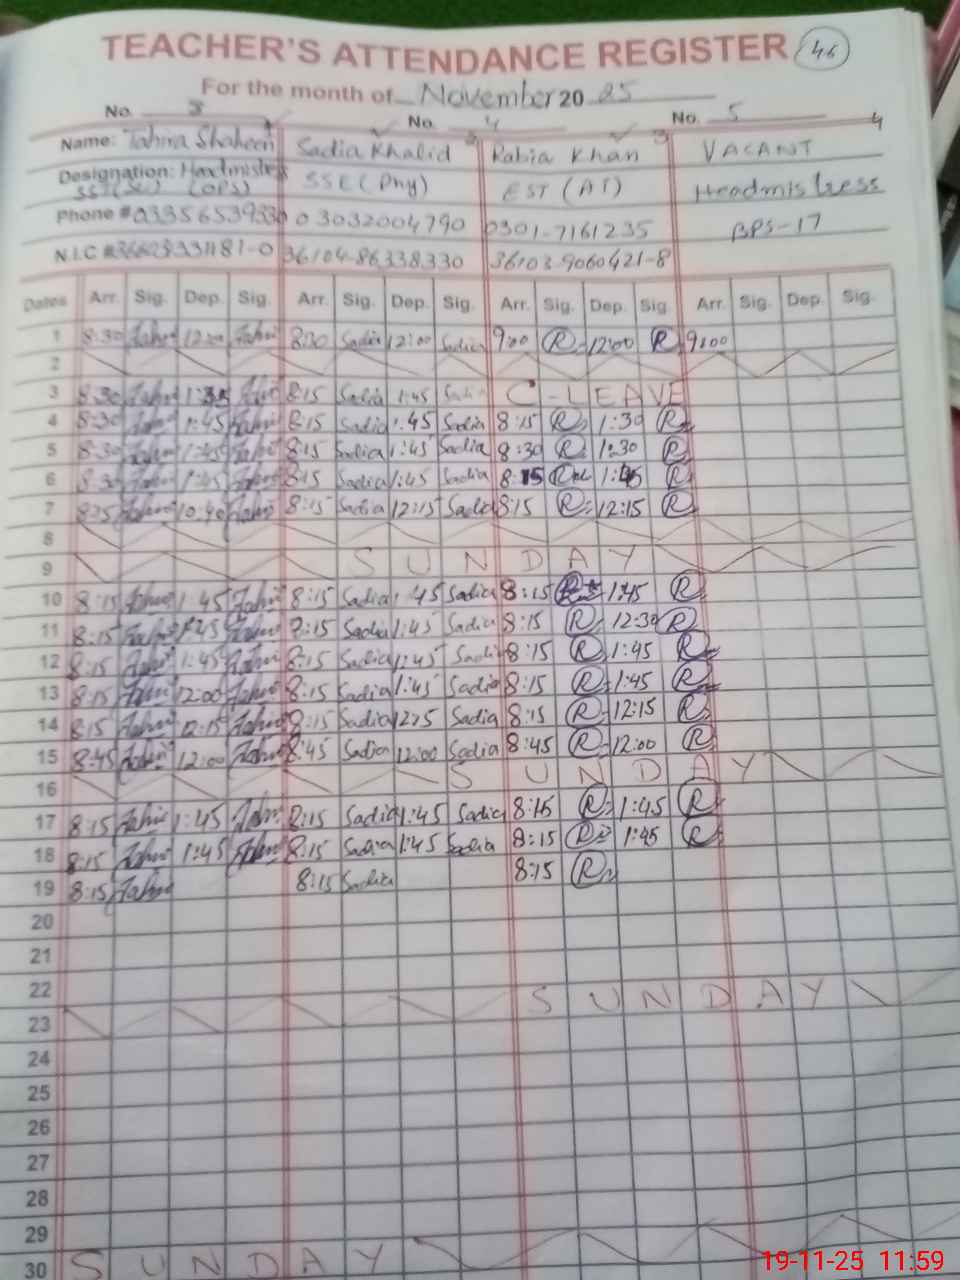 TEACHER'S ATTENDANCE REGISTER 46
For the month of November 2025
No. 3 No. 4 No. 5
Name: Tahira Shaheen Sadia Khalid Rabia Khan VACANT
Designation: Headmistress SSE (Phy) EST (AT) Headmistress
SST (Sc) (OPS)
Phone # 03032004790 0301-7161235 BPS-17
N.I.C # 36104-86338330 36103-9060421-8
Dates Arr. Sig. Dep. Sig. Arr. Sig. Dep. Sig. Arr. Sig. Dep. Sig. Arr. Sig. Dep. Sig.
1 8:30 Tahir 12:00 Tahir 8:30 Sadia 12:00 Sadia 9:00 R 12:00 R 9:00
2
3 8:30 Tahir 1:35 Tahir 8:15 Sadia 1:45 Sadia C-LEAVE
4 8:30 Tahir 1:45 Tahir 8:15 Sadia 1:45 Sadia 8:15 R 1:30 R
5 8:30 Tahir 1:45 Tahir 8:15 Sadia 1:45 Sadia 8:30 R 1:30 R
6 8:30 Tahir 1:45 Tahir 8:15 Sadia 1:45 Sadia 8:15 R 1:45 R
7 8:15 Tahir 10:40 Tahir 8:15 Sadia 12:15 Sadia 8:15 R 12:15 R
8
9 SUNDAY
10 8:15 Tahir 1:45 Tahir 8:15 Sadia 1:45 Sadia 8:15 R 1:45 R
11 8:15 Tahir 1:45 Tahir 8:15 Sadia 1:45 Sadia 8:15 R 12:30 R
12 8:15 Tahir 1:45 Tahir 8:15 Sadia 1:45 Sadia 8:15 R 1:45 R
13 8:15 Tahir 12:00 Tahir 8:15 Sadia 1:45 Sadia 8:15 R 1:45 R
14 8:15 Tahir 12:15 Tahir 8:15 Sadia 1215 Sadia 8:15 R 12:15 R
15 8:45 Tahir 12:00 Tahir 8:45 Sadia 12:00 Sadia 8:45 R 12:00 R
16 SUNDAY
17 8:15 Tahir 1:45 Tahir 8:15 Sadia 1:45 Sadia 8:15 R 1:45 R
18 8:15 Tahir 1:45 Tahir 8:15 Sadia 1:45 Sadia 8:15 R 1:45 R
19 8:15 Tahir 8:15 Sadia 8:15 R
20
21
22
23 SUNDAY
24
25
26
27
28
29
30 SUNDAY
19-11-25 11:59